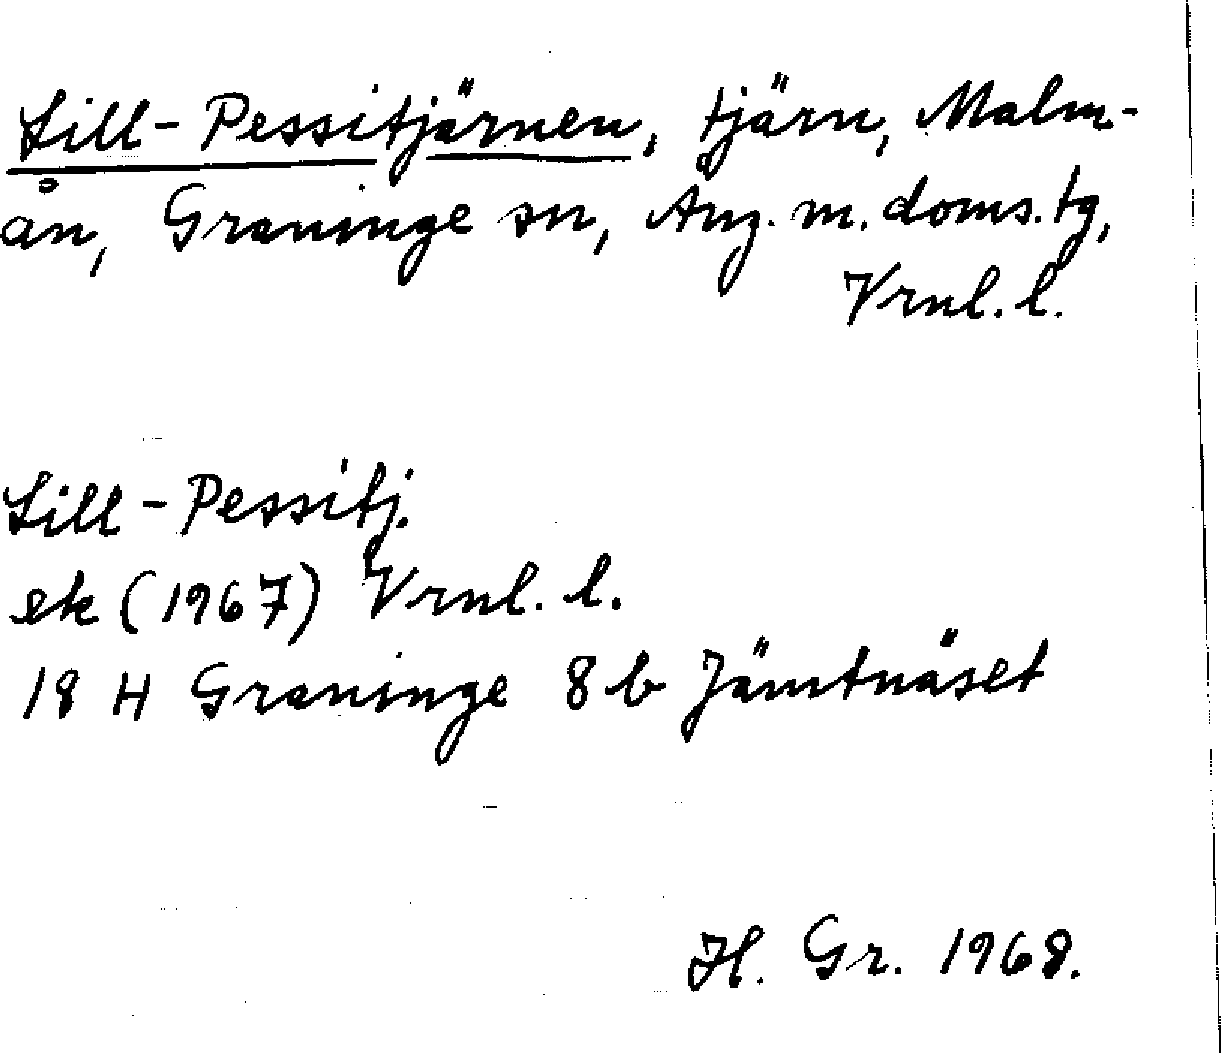 Lill-Pessitjärnen, tjärn, Malm-
ån, Graninge sn, Ång. m. doms. tg,
Vrnl. l.
Lill-Pessitj.
ek (1967) Vrnl. l.
18 H Graninge 8 b Jämtnäset
H. Gr. 1968.